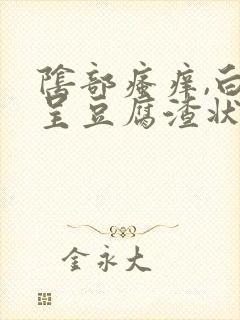 阴部瘙痒,白
呈豆腐渣状
金永大